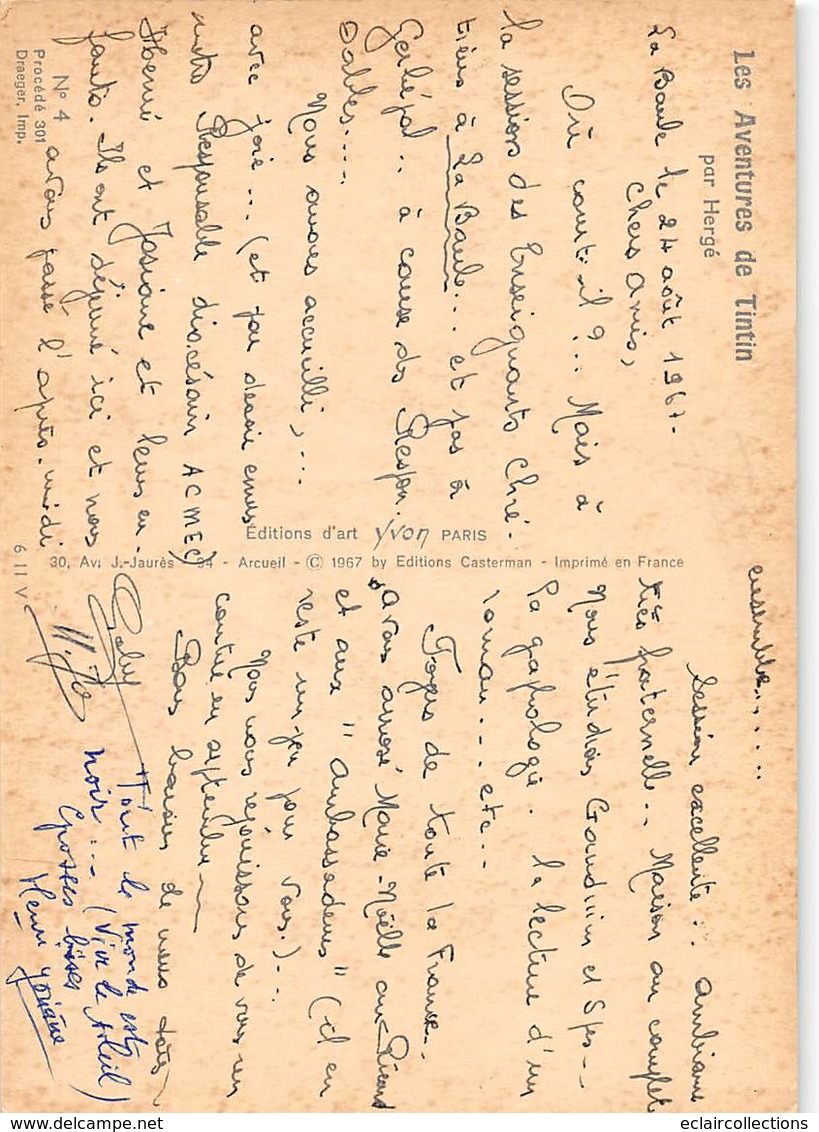 Les Aventures de Tintin
par Hergé
La Baule le 24 août 1967.
Chers Amis,
Où court-il ?.. Mais à
la session des Enseignants Chré.
tiens à La Baule... et pas à
à cause des Respon.
sables....
Nous avons accueilli, ...
avec joie... (et
Responsable diocésain ACMEC)
Henri et Josiane et leurs en-
fants. Ils ont déjeuné ici et nous
avons passé l'après-midi
N° 4
Procédé 301
Draeger, Imp.
Éditions d'art Yvon PARIS
30, Av. J.-Jaurès - 94 - Arcueil - © 1967 by Editions Casterman - Imprimé en France
6 II V
ensemble......
Session excellente : ambiance
très fraternelle.. Maison au complet
Nous étudions Grandeur et
la graphologie. la lecture d'un
roman... etc..
Foyers de toute la France..
Avons arrosé Marie-Noëlle au Ricard
et aux "Ambassadeurs" (il en
reste un peu pour vous.)-..
Nous nous réjouissons de vous ren
contrer en septembre
Bons baisers de nous tous
Gaby
Tout le monde est
noir... (Vive le soleil)
Grosses bises
Henri Josiane
eclaircollections.com